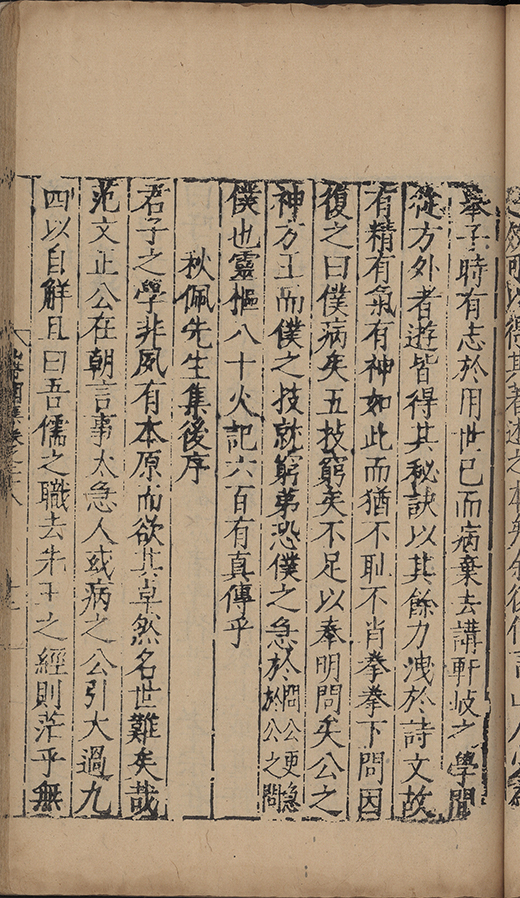 舉子時有志於用世已而病棄去講軒岐之學間
從方外者遊皆得其秘訣以其餘力洩於詩文故
有精有氣有神如此而猶不恥不肖拳拳下問因
復之曰僕病矣五技窮矣不足以奉明問矣公之
神方王而僕之技就窮第恐僕之急於問公更急於公之問
僕也靈樞八十火記六百有真傳乎
秋佩先生集後序
君子之學非夙有本原而欲其卓然名世難矣哉
范文正公在朝言事太急人或病之公引大過九
四以自解且曰吾儒之職去先王之經則茫乎無